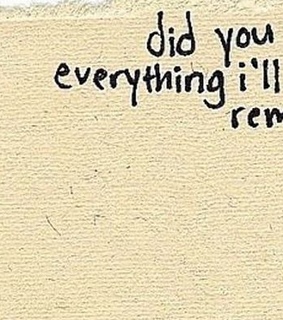 did you
everything i'll
rem